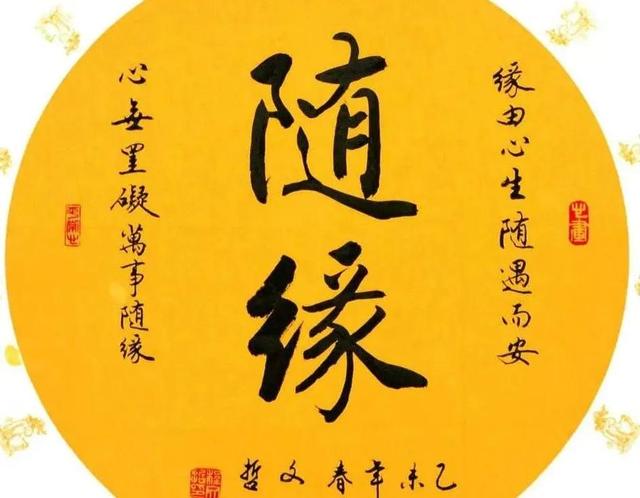 缘由心生随遇而安
随缘
心無罣礙萬事随缘
乙未年春文哲